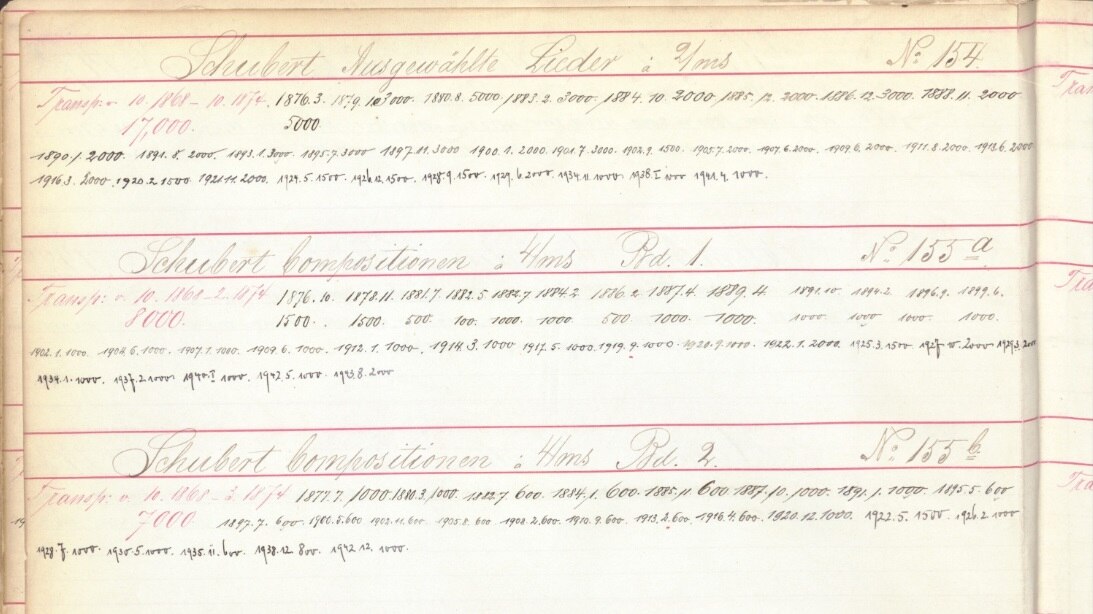 Schubert Ausgewählte Lieder à 2/ms No 154.
Transp: v. 10.1868 – 10.1874. 1876.3. 1879.10.3000. 1880.8. 5000. 1883.2. 3000. 1884.10. 2000. 1885.12. 2000. 1886.12. 3000. 1888.11. 2000
17,000. 5000
1890.1. 2000. 1891.8. 2000. 1893.1. 3000. 1895.7. 3000 1897.11. 3000 1900.1. 2000. 1901.7. 3000. 1903.9. 1500. 1905.7. 2000. 1907.6. 2000. 1909.6. 2000. 1911.8. 2000. 1913.6. 2000
1916.3. 2000. 1920.2. 1500 1921.11. 2000. 1924.5. 1500. 1926.12. 1500. 1928.9. 1500. 1929.6. 2000. 1934.11. 1000. 1938.I 1000 1941.4. 1000.
Schubert Compositionen à 4/ms Bd. 1. No 155 a
Transp: v. 10. 1868 – 2. 1874 1876.10. 1878.11. 1881.7. 1882.5 1882.7 1884.2 1886.2. 1887.4. 1889.4 1891.10 1894.2. 1896.9. 1899.6.
8000. 1500. 1500. 500. 100. 1000. 1000 500. 1000. 1000. 1000 1000 1000. 1000.
1902.1. 1000. 1904.6. 1000. 1907.1. 1000. 1909.6. 1000. 1912.1. 1000. 1914.3. 1000 1917.5. 1000. 1919.9. 1000. 1920.9. 1000. 1922.1. 2000. 1925.3. 1500 1927.10. 2000 1929.3. 2000
1934.1. 1000. 1937.2. 1000 1940.I 1000. 1942.5. 1000. 1943.8. 2000
Schubert Compositionen à 4/ms Bd. 2. No 155 b
Transp: v. 10. 1868 – 2. 1874 1877.7. 1000. 1880.3. 1000. 1882.7. 600. 1884.1. 600. 1885.11. 600 1887.10. 1000. 1891.1. 1000. 1895.5. 600
7000. 1897.7. 600. 1900.5. 600 1902.11. 600. 1905.8. 600. 1908.2. 600. 1910.9. 600. 1913.2. 600. 1916.4. 600. 1920.12. 1000. 1922.5. 1500. 1926.2. 1000
1928.7. 1000. 1930.5. 1000. 1935.11. 600. 1938.12. 800. 1942.12. 1000.